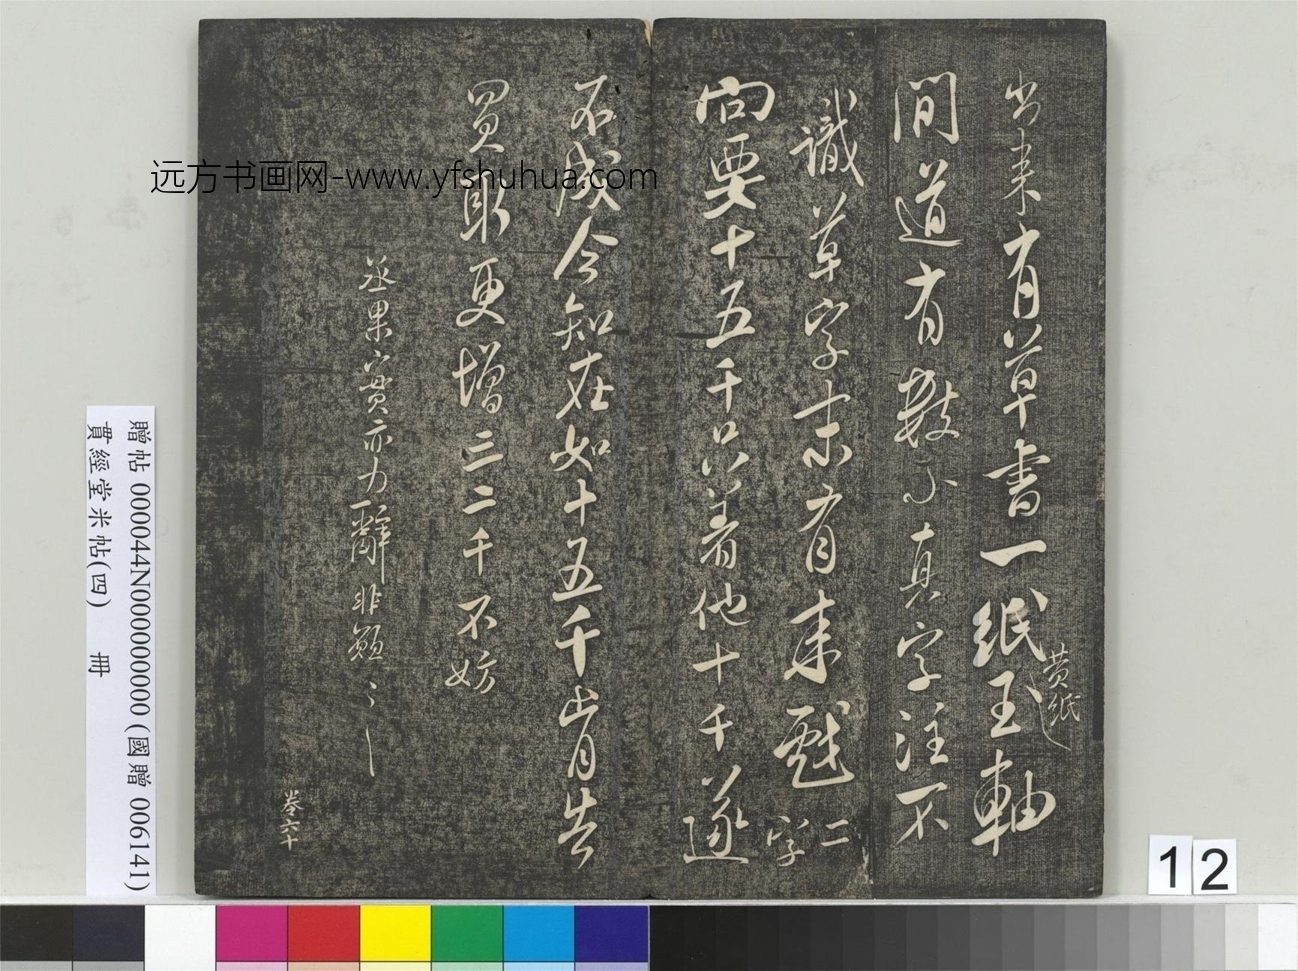 出来有草書一紙玉軸
黄紙
間道有數小真字注不
識草字末有来戲二字
向要十五千只着他十千遂
不成今知在如十五千出月告
買取更增三二千不妨
丞果實亦力辭非願
卷六十
远方书画网-www.yfshuhua.com
贈帖 000044N000000000 (國贈 006141)
貫經堂米帖(四) 冊
12